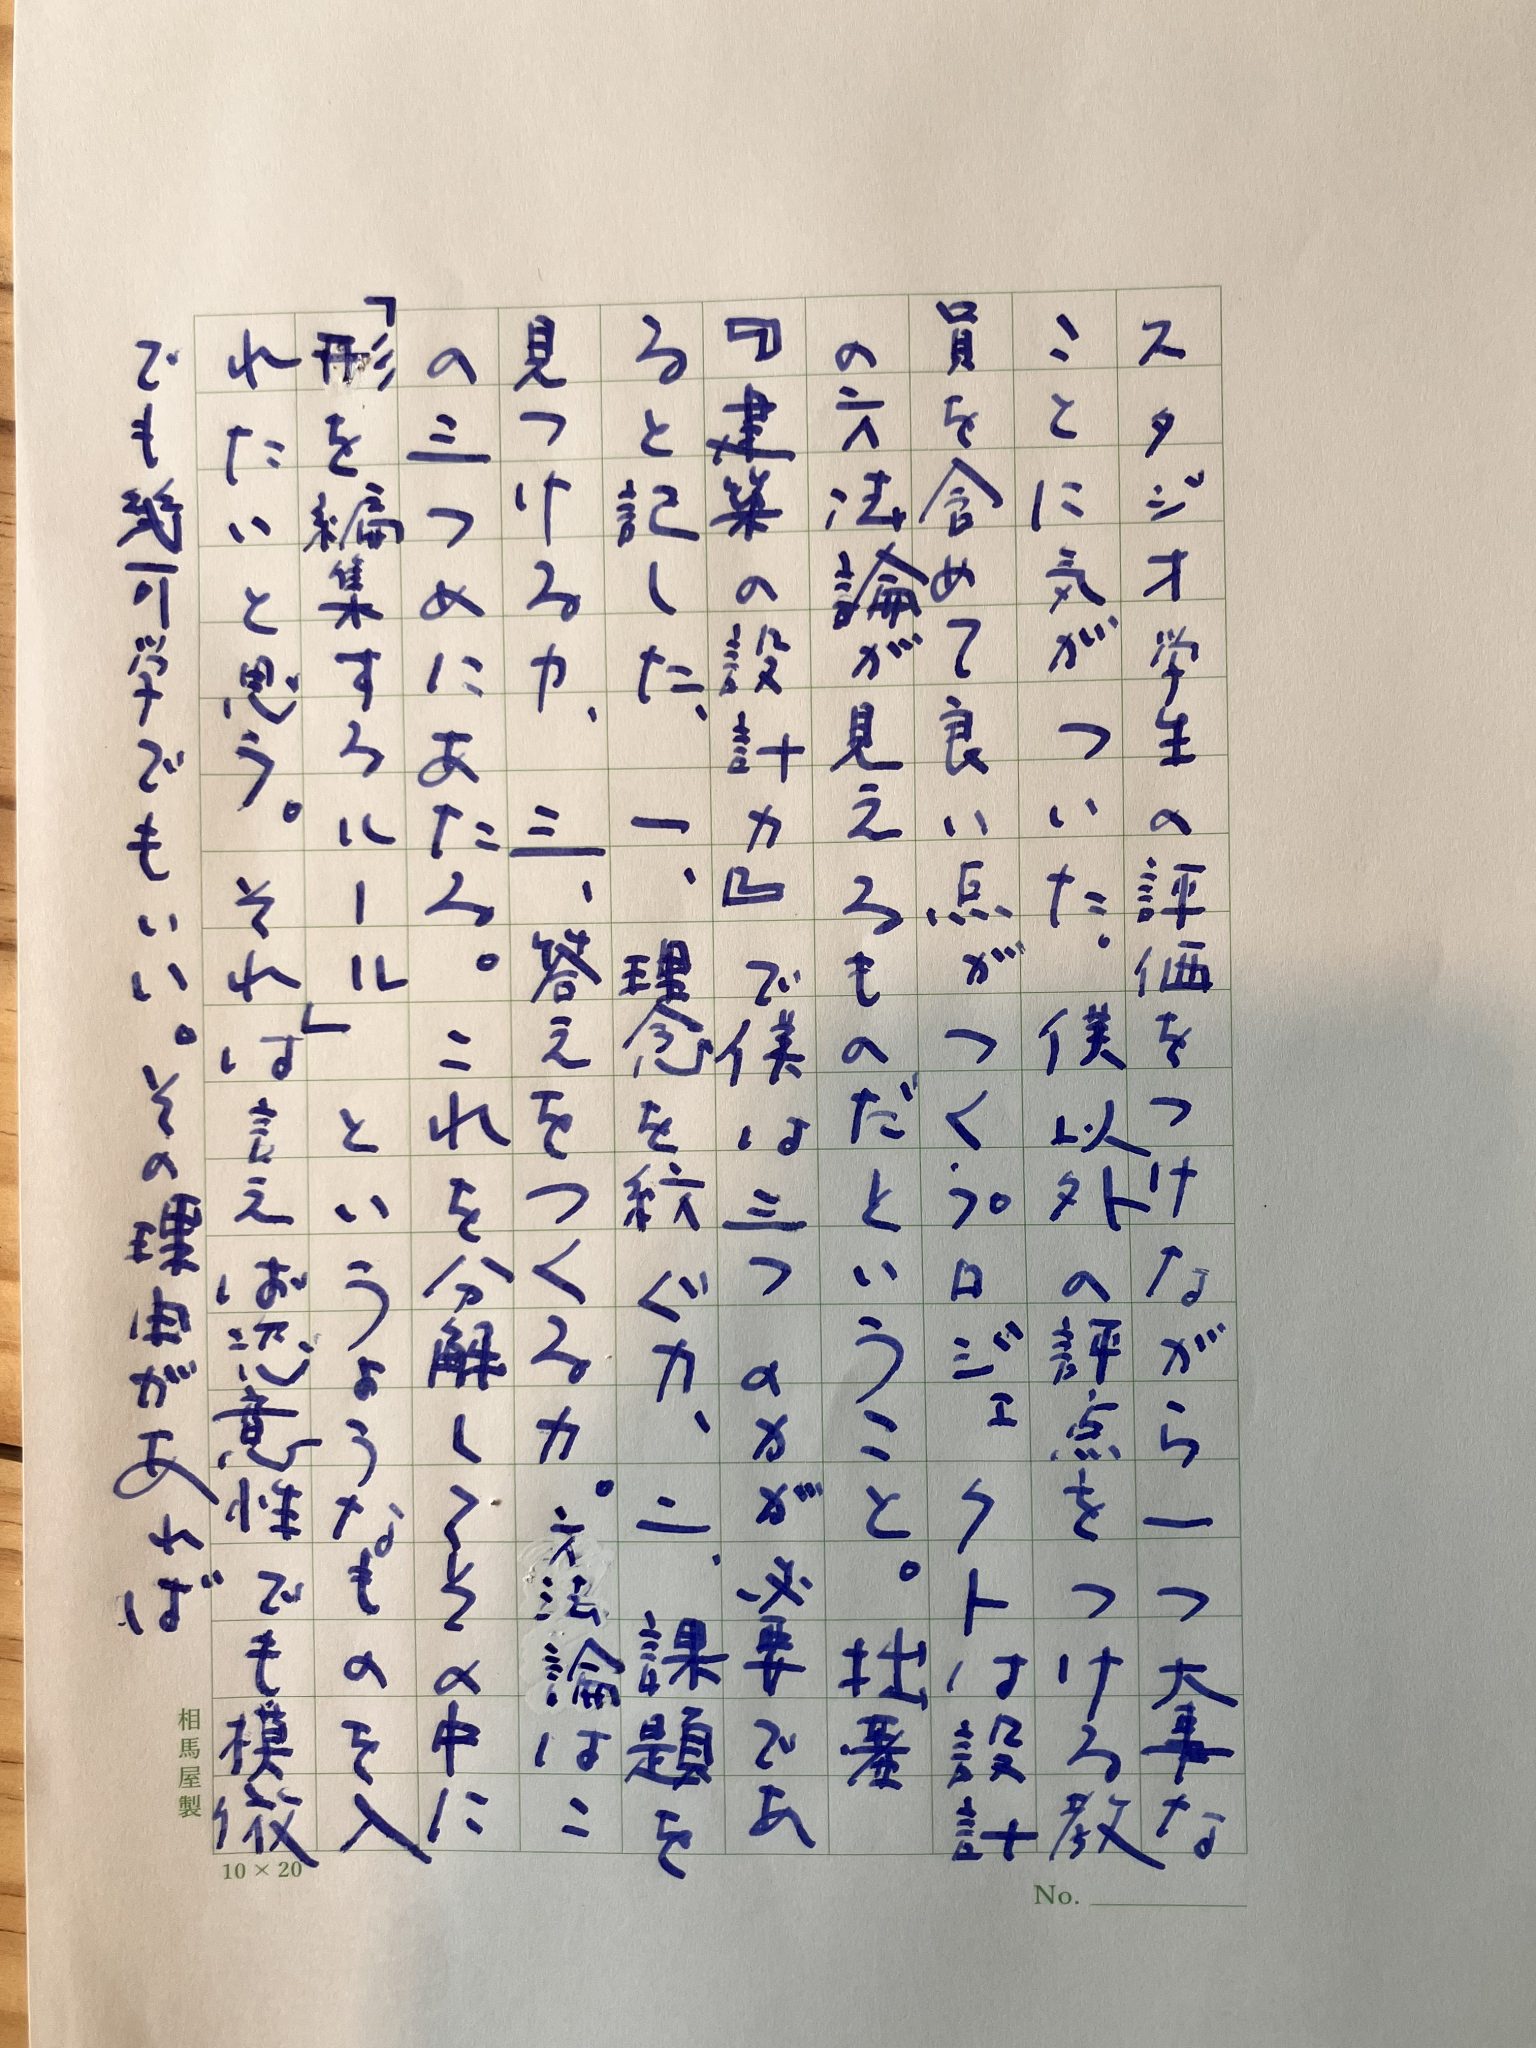 スタジオ学生の評価をつけながら一つ大事な
ことに気がついた。僕以外の評点をつける教
員を含めて良い点がつくプロジェクトは設計
の方法論が見えるものだということ。拙著
『建築の設計力』で僕は三つの力が必要であ
ると記した、一、理念を紡ぐ力、二、課題を
見つける力、三、答えをつくる力。方法論はこ
の三つめにあたる。これを分解してその中に
「形を編集するルール」というようなものを入
れたいと思う。それは言えば恣意性でも模倣
でも幾何学でもいい。その理由があれば
相馬屋製
10×20
No.